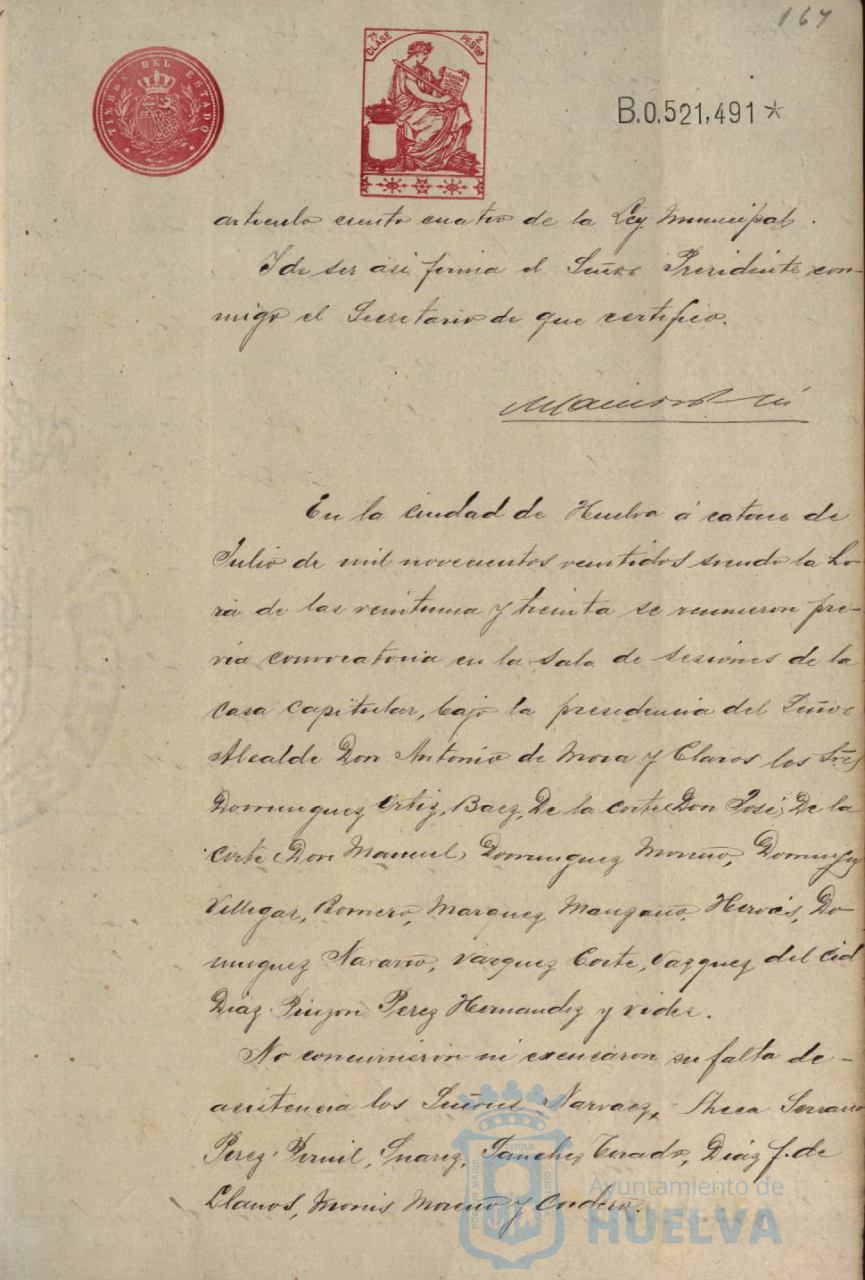 167
TIMBRE DEL ESTADO
7ª CLASE
2 PESETAS
B.0.521,491*
articulo ciento cuatro de la Ley Municipal.
Y de ser asi firma el Señor Presidente con-
migo el Secretario de que certifico.
En la ciudad de Huelva á catorce de
Julio de mil novecientos veintidos siendo la ho
ra de las veintiuna y treinta se reunieron pre-
via convocatoria en la sala de sesiones de la
casa capitular, bajo la presidencia del Señor
Alcalde Don Antonio de Mora y Claros los Sres
Dominguez Ortiz, Baez, De la Corte (Don José) De la
Corte (Don Manuel) Dominguez Moreno, Dominguez
Villegas, Romero, Marquez, Manzano, Hervás, Do
minguez Navarro, Vazquez Corte, Vazquez del Cid
Diaz Pinzon Perez Hernandez y Vides.
No concurrieron ni excusaron su falta de-
asistencia los Señores Narvaez, Checa Serrano
Perez Pernil, Suarez, Sanchez Tirado, Diaz f. de
Llanos, Monis Moreno y Cordero.
Ayuntamiento de
HUELVA